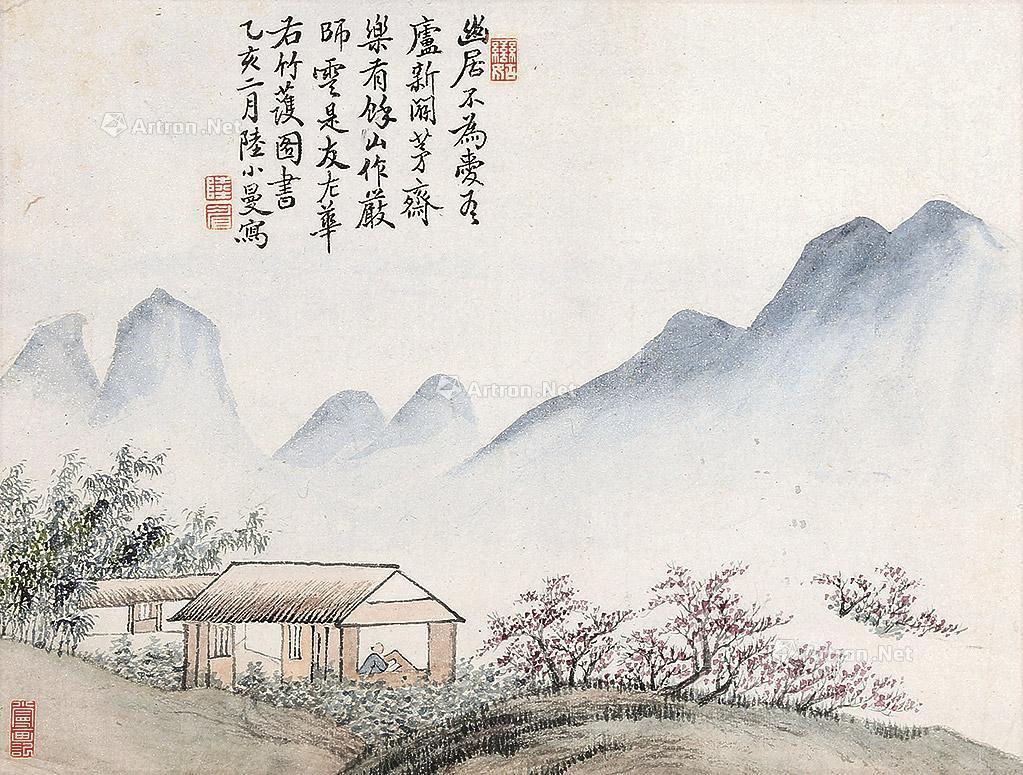 幽居不為愛吾
廬新開茅齋
樂有餘山作嚴
師雲是友左華
右竹護圖書
乙亥二月陸小曼寫
Artron.Net
Artron.Net
Artron.Net